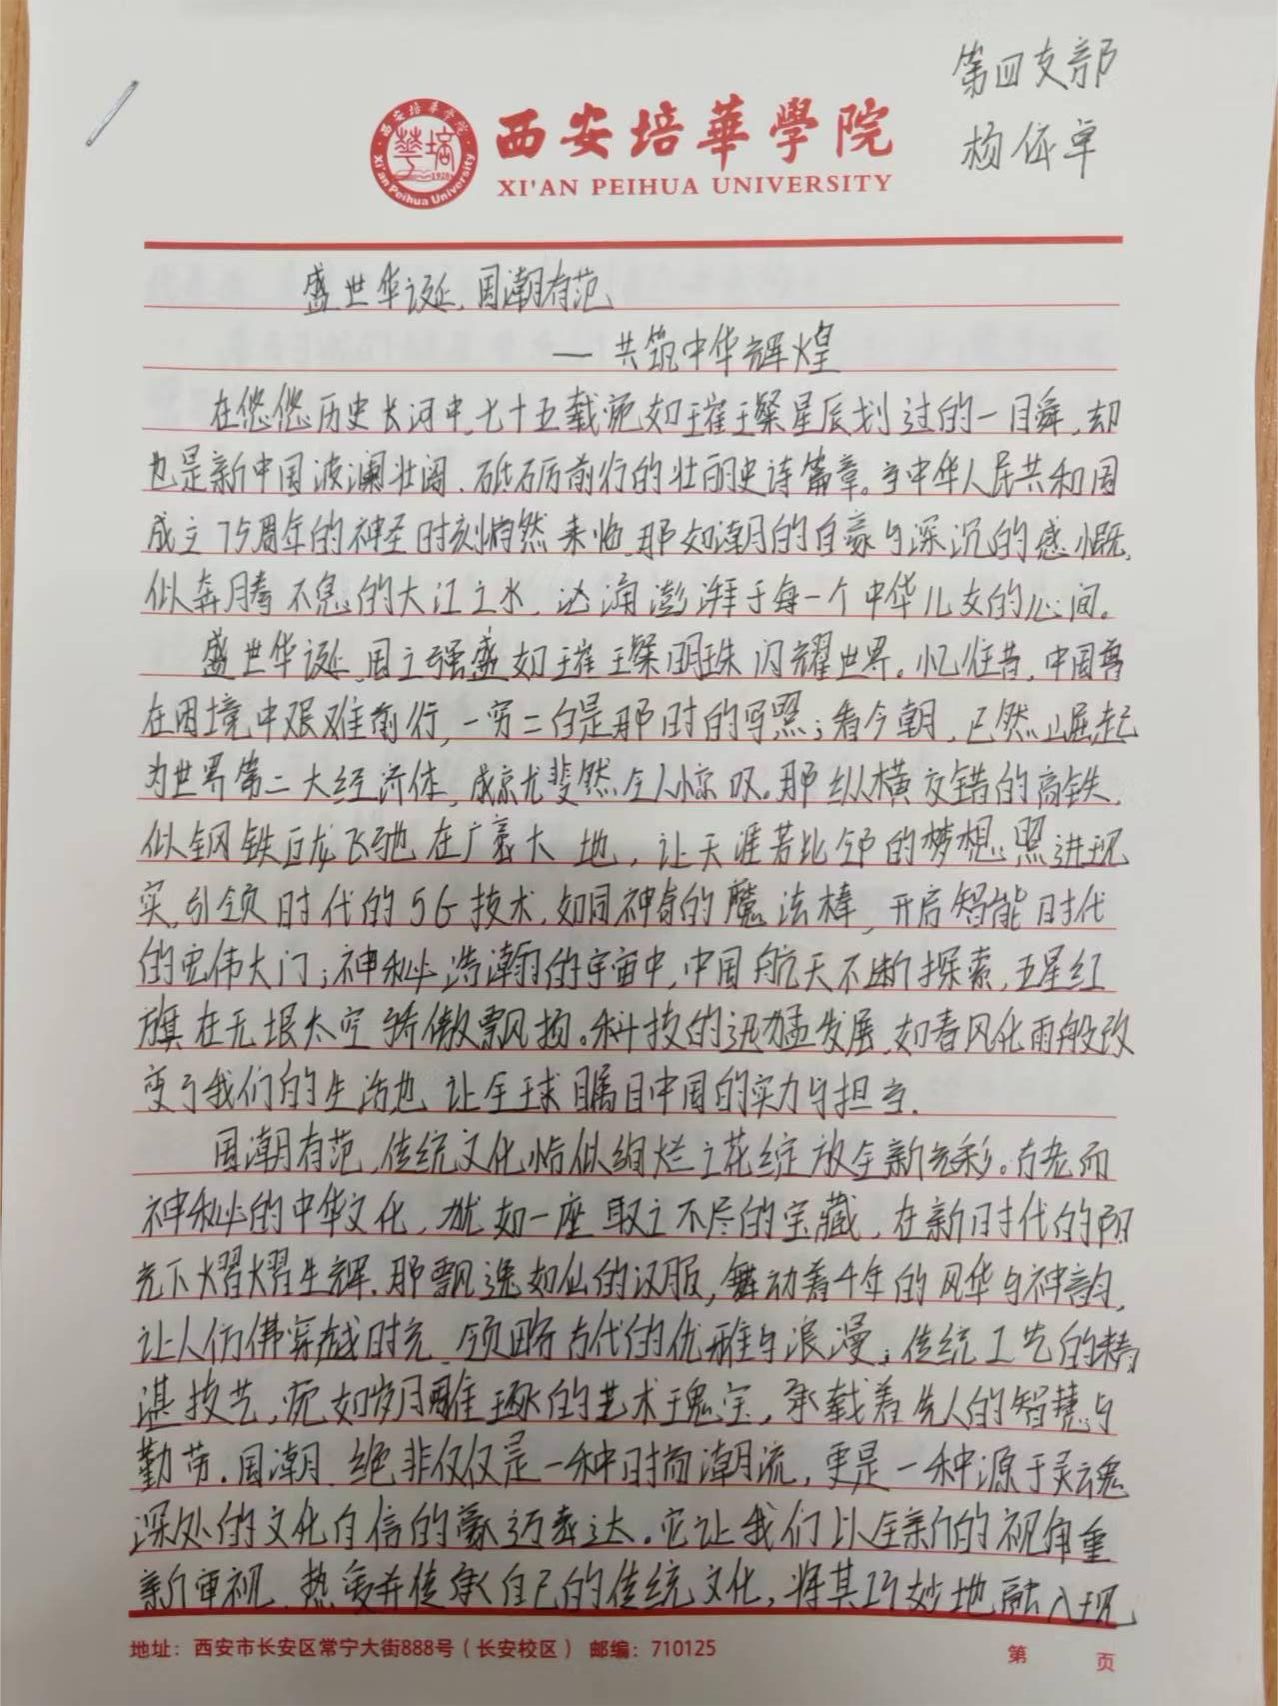 第四支部
杨依卓
西安培華學院
XI'AN PEIHUA UNIVERSITY
西安培華學院
Xi'an Peihua University
1928
盛世华诞,国潮有范
— 共筑中华辉煌
在悠悠历史长河中,七十五载宛如璀璨星辰划过的一瞬,却
也是新中国波澜壮阔、砥砺前行的壮丽史诗篇章。当中华人民共和国
成立75周年的神圣时刻悄然来临,那如潮的自豪与深沉的感慨,
似奔腾不息的大江之水,汹涌澎湃于每一个中华儿女的心间。
盛世华诞,国之强盛如璀璨明珠闪耀世界。忆往昔,中国曾
在困境中艰难前行,一穷二白是那时的写照;看今朝,已然崛起
为世界第二大经济体,成就斐然令人惊叹。那纵横交错的高铁,
似钢铁巨龙飞驰在广袤大地,让天涯若比邻的梦想照进现
实,引领时代的5G技术,如同神奇的魔法棒,开启智能时代
的宏伟大门;神秘浩瀚的宇宙中,中国航天不断探索,五星红
旗在无垠太空骄傲飘扬。科技的迅猛发展,如春风化雨般改
变了我们的生活也让全球瞩目中国的实力与担当.
国潮有范,传统文化恰似绚烂之花绽放全新光彩。古老而
神秘的中华文化,犹如一座取之不尽的宝藏,在新时代的阳
光下熠熠生辉.那飘逸如仙的汉服,舞动着千年的风华与神韵,
让人仿佛穿越时光,领略古代的优雅与浪漫;传统工艺的精
湛技艺,宛如岁月雕琢的艺术瑰宝,承载着先人的智慧与
勤劳.国潮,绝非仅仅是一种时尚潮流,更是一种源于灵魂
深处的文化自信的豪迈表达.它让我们以全新的视角重
新审视、热爱并传承自己的传统文化,将其巧妙地融入现
地址：西安市长安区常宁大街888号（长安校区） 邮编：710125
第 页